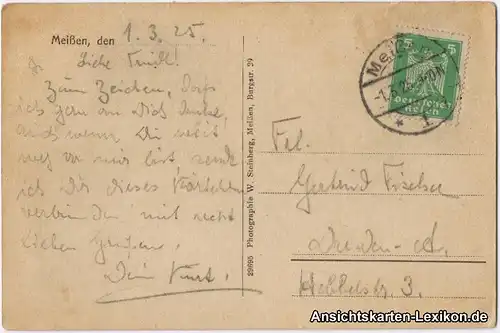 Meißen, den 1.3.25.
Liebe Trudl!
Zum Zeichen, daß
ich gern an Dich denke,
auch wenn Du weit
weg von mir bist, sende
ich Dir dieses Kärtchen
verbunden mit recht
lieben Grüßen.
Dein Kurt.
29695 Photographie W. Steinberg, Meißen, Burgstr. 29
5 5
Deutsches
Reich
Frl.
Gertrud Fischer
Dresden-A.
Hebbelstr. 3.
Ansichtskarten-Lexikon.de